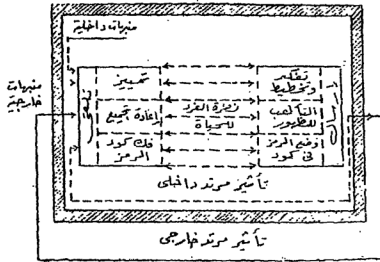 منبهات داخلية
منبهات خارجية
تمييز
إعادة تجميع
فك كود الرمز
نظرة الفرد للحياة
تفكير وتخطيط
التأهب للظهور
وضع الرمز فى كود
تأثير مرتد داخلى
تأثير مرتد خارجى